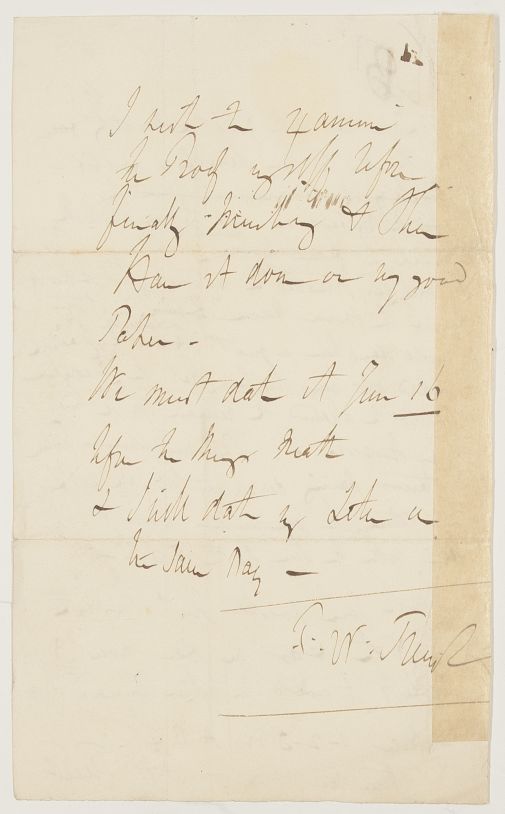 I wish to examine
the Proof myself before
finally & then
Have it done on very good
Paper -
We must date it June 16
before the King's Death
& I will date my Letter on
the same Day -